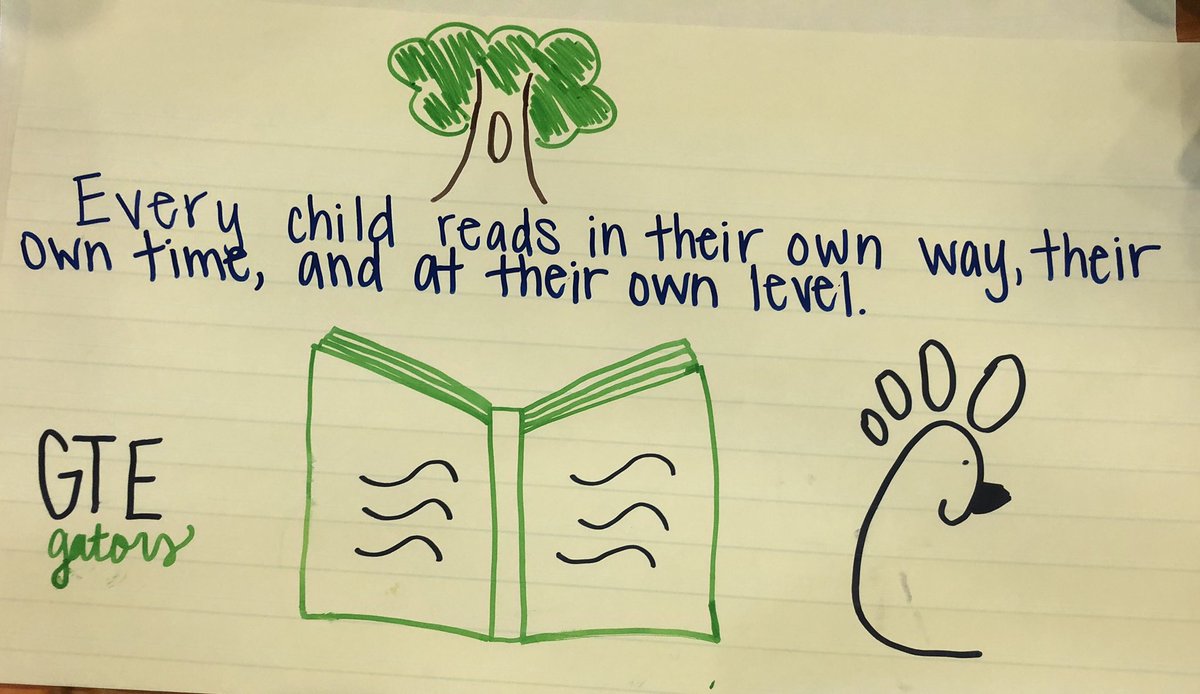 Every child reads in their own way, their
own time, and at their own level.
GTE
gators